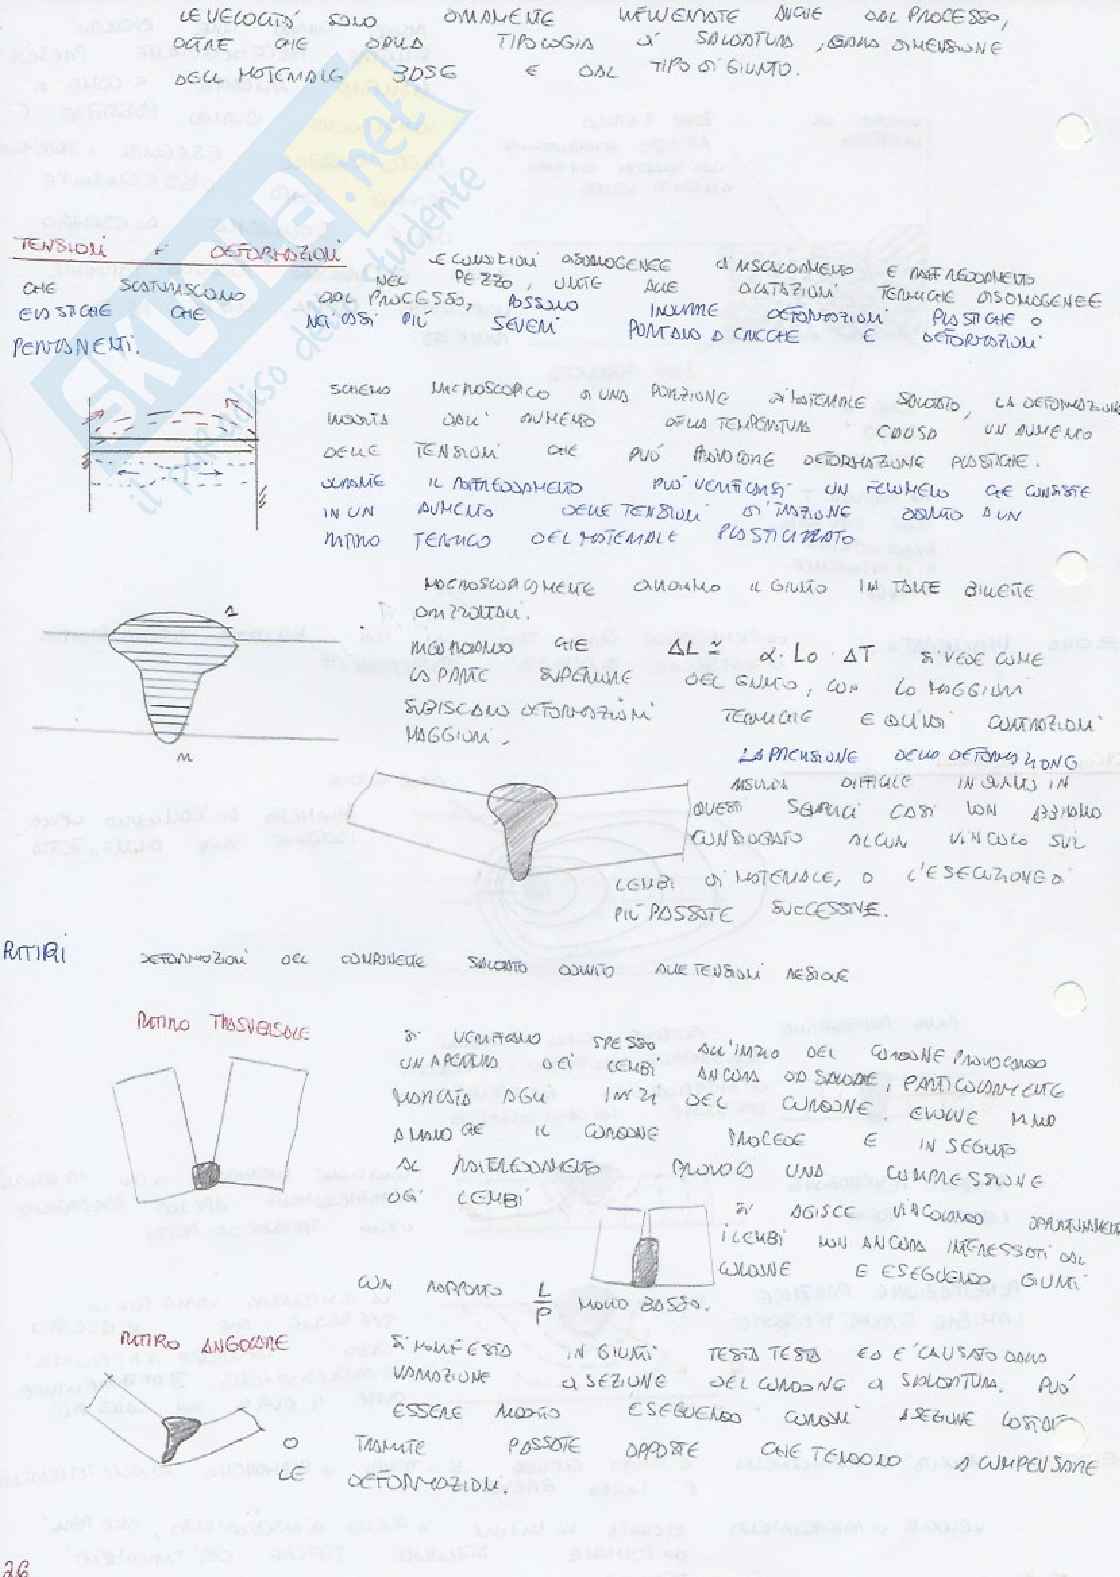 LE VELOCITÀ SOLO OVVIAMENTE INFLUENZATE ANCHE DAL PROCESSO,
OLTRE CHE DALLA TIPOLOGIA DI SALDATURA, DALLA DIMENSIONE
DELL MATERIALE BASE E DAL TIPO DI GIUNTO.
TENSIONI E DEFORMAZIONI
LE CONDIZIONI DISOMOGENEE DI RISCALDAMENTO E RAFFREDDAMENTO
CHE SCATURISCONO NEL PEZZO, UNITE ALLE DILATAZIONI TERMICHE DISOMOGENEE
DAL PROCESSO, POSSONO INDURRE DEFORMAZIONI PLASTICHE O
ELASTICHE CHE NEI CASI PIÙ SEVERI PORTANO A CRICCHE E DEFORMAZIONI
PERMANENTI.
SCHEMA MICROSCOPICO DI UNA PORZIONE DI MATERIALE SALDATO, LA DEFORMAZIONE
INDOTTA DALL' AUMENTO DELLA TEMPERATURA CAUSA UN AUMENTO
DELLE TENSIONI CHE PUÒ PROVOCARE DEFORMAZIONE PLASTICHE.
DURANTE IL RAFFREDDAMENTO PUÒ VERIFICARSI UN FENOMENO CHE CONSISTE
IN UN AUMENTO DELLE TENSIONI DI TRAZIONE DOVUTO A UN
RITIRO TERMICO DEL MATERIALE PLASTICIZZATO
MACROSCOPICAMENTE DIVIDIAMO IL GIUNTO IN TANTE BILLETTE
ORIZZONTALI.
RICORDANDO CHE ΔL ≃ α · L0 · ΔT SI VEDE COME
LA PARTE SUPERIORE DEL GIUNTO, CON L0 MAGGIORI
SUBISCANO DEFORMAZIONI TERMICHE E QUINDI CONTRAZIONI
MAGGIORI.
LA PREVISIONE DELLA DEFORMAZIONE
RISULTA DIFFICILE IN QUANTO IN
QUESTI SEMPLICI CASI NON ABBIAMO
CONSIDERATO ALCUN VINCOLO SUI
LEMBI DI MATERIALE, O L'ESECUZIONE DI
PIÙ PASSATE SUCCESSIVE.
RITIRI
DEFORMAZIONI DEL COMPONENTE SALDATO DOVUTO ALLE TENSIONI RESIDUE
RITIRO TRASVERSALE
SI VERIFICANO SPESSO ALL'INIZIO DEL CORDONE PROVOCANDO
UN APERTURA DEI LEMBI ANCORA DA SALDARE, PARTICOLARMENTE
MARCATA AGLI INIZI DEL CORDONE. EVOLVE MANO
A MANO CHE IL CORDONE PROCEDE E IN SEGUITO
AL RAFFREDDAMENTO PROVOCA UNA COMPRESSIONE
DEI LEMBI
SI AGISCE VINCOLANDO OPPORTUNAMENTE
I LEMBI NON ANCORA INTERESSATI DAL
CORDONE E ESEGUENDO GIUNTI
CON RAPPORTO L/P MOLTO BASSO.
RITIRO ANGOLARE
SI MANIFESTA IN GIUNTI TESTA TESTA ED E' CAUSATO DALLA
VARIAZIONE DI SEZIONE DEL CORDONE DI SALDATURA. PUÒ
ESSERE RIDOTTO ESEGUENDO CORDONI A SEZIONE COSTANTE
O TRAMITE PASSATE OPPOSTE CHE TENDONO A COMPENSARE
LE DEFORMAZIONI.
26
SKUOLA.net
il paradiso dello studente